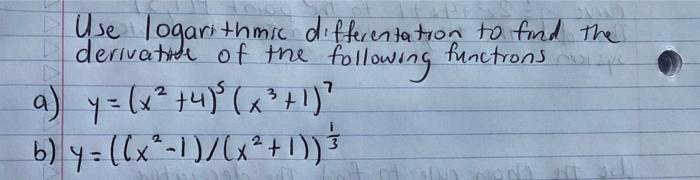 Use logarithmic differentation to find the
derivative of the following functions
a) y = (x² + 4)⁵ (x³ + 1)⁷
b) y = ((x² - 1) / (x² + 1))^(1/3)